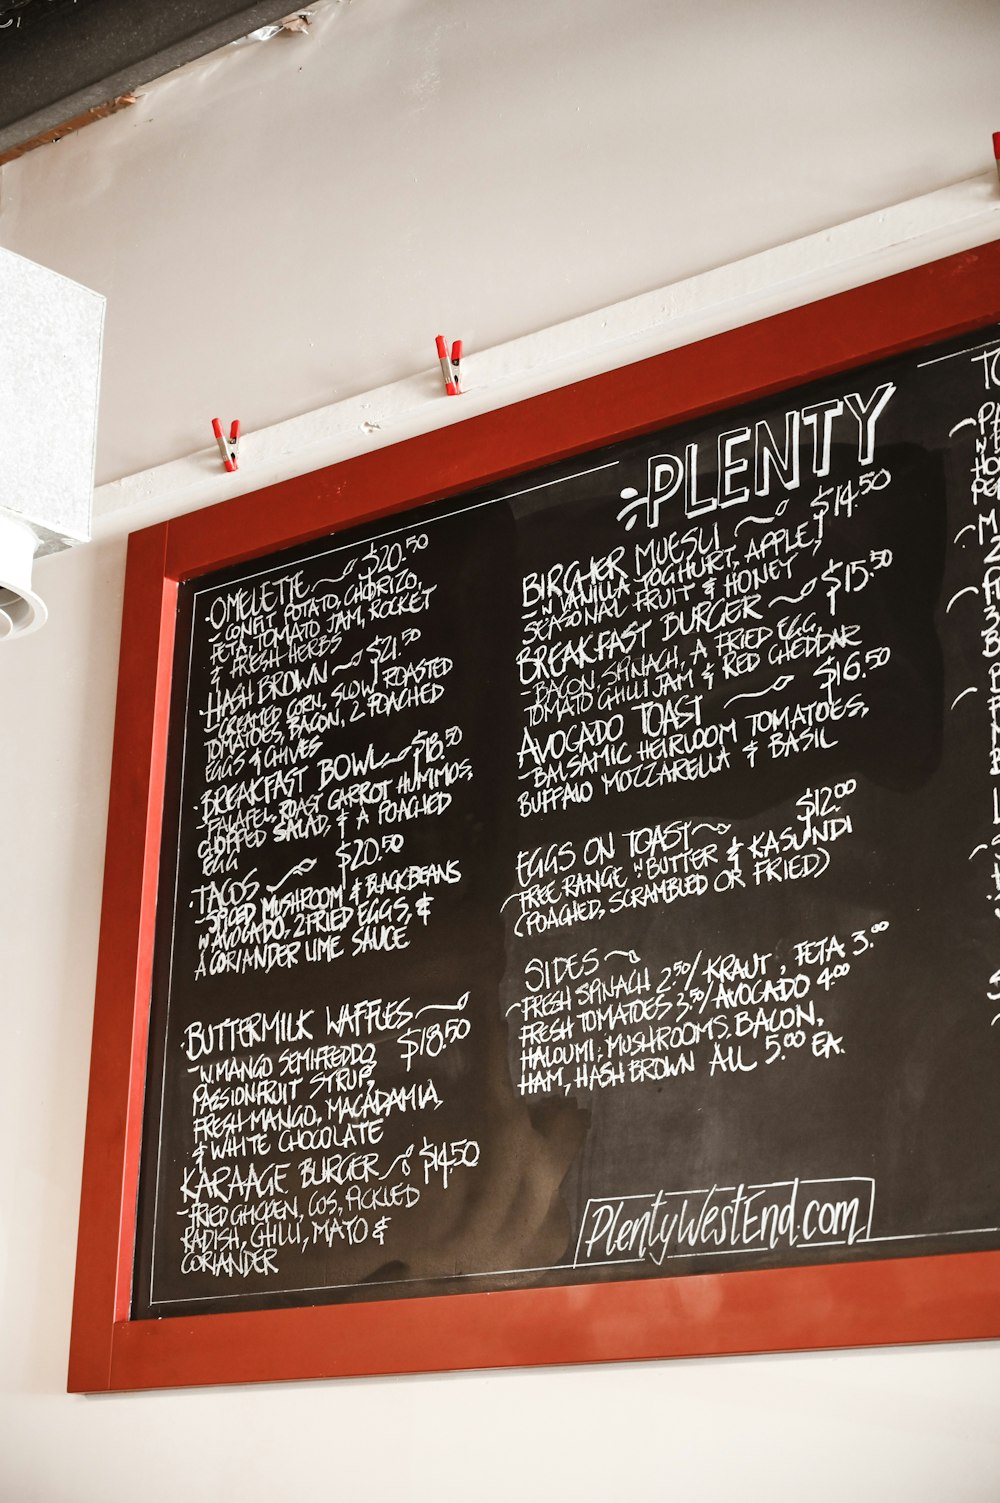 PLENTY
OMELETTE $20.50
- CONFIT POTATO, CHORIZO,
FETA, TOMATO JAM, ROCKET
& FRESH HERBS
HASH BROWN $21.50
- CREAMED CORN, SLOW ROASTED
TOMATOES, BACON, 2 POACHED
EGGS & CHIVES
BREAKFAST BOWL $18.50
- FALAFEL, ROAST CARROT HUMMOS,
CHOPPED SALAD, & A POACHED
EGG
TACOS $20.50
- SPICED MUSHROOM & BLACKBEANS
W AVOCADO, 2 FRIED EGGS, &
A CORIANDER LIME SAUCE
BUTTERMILK WAFFLES
$18.50
- W. MANGO SEMIFREDDO,
PASSIONFRUIT SYRUP,
FRESH MANGO, MACADAMIA,
& WHITE CHOCOLATE
KARAAGE BURGER $14.50
- FRIED CHICKEN, COS, PICKLED
RADISH, CHILLI, MAYO &
CORIANDER
BIRCHER MUESLI $14.50
- W VANILLA YOGHURT, APPLE,
SEASONAL FRUIT & HONEY
BREAKFAST BURGER $15.50
- BACON, SPINACH, A FRIED EGG,
TOMATO CHILLI JAM & RED CHEDDAR
AVOCADO TOAST $16.50
- BALSAMIC HEIRLOOM TOMATOES,
BUFFALO MOZZARELLA & BASIL
EGGS ON TOAST $12.00
- FREE RANGE W BUTTER & KASUNDI
(POACHED, SCRAMBLED OR FRIED)
SIDES
- FRESH SPINACH 2.50/ KRAUT, FETA 3.00
FRESH TOMATOES 3.50/ AVOCADO 4.00
HALOUMI, MUSHROOMS, BACON,
HAM, HASH BROWN ALL 5.00 EA.
PlentyWestEnd.com